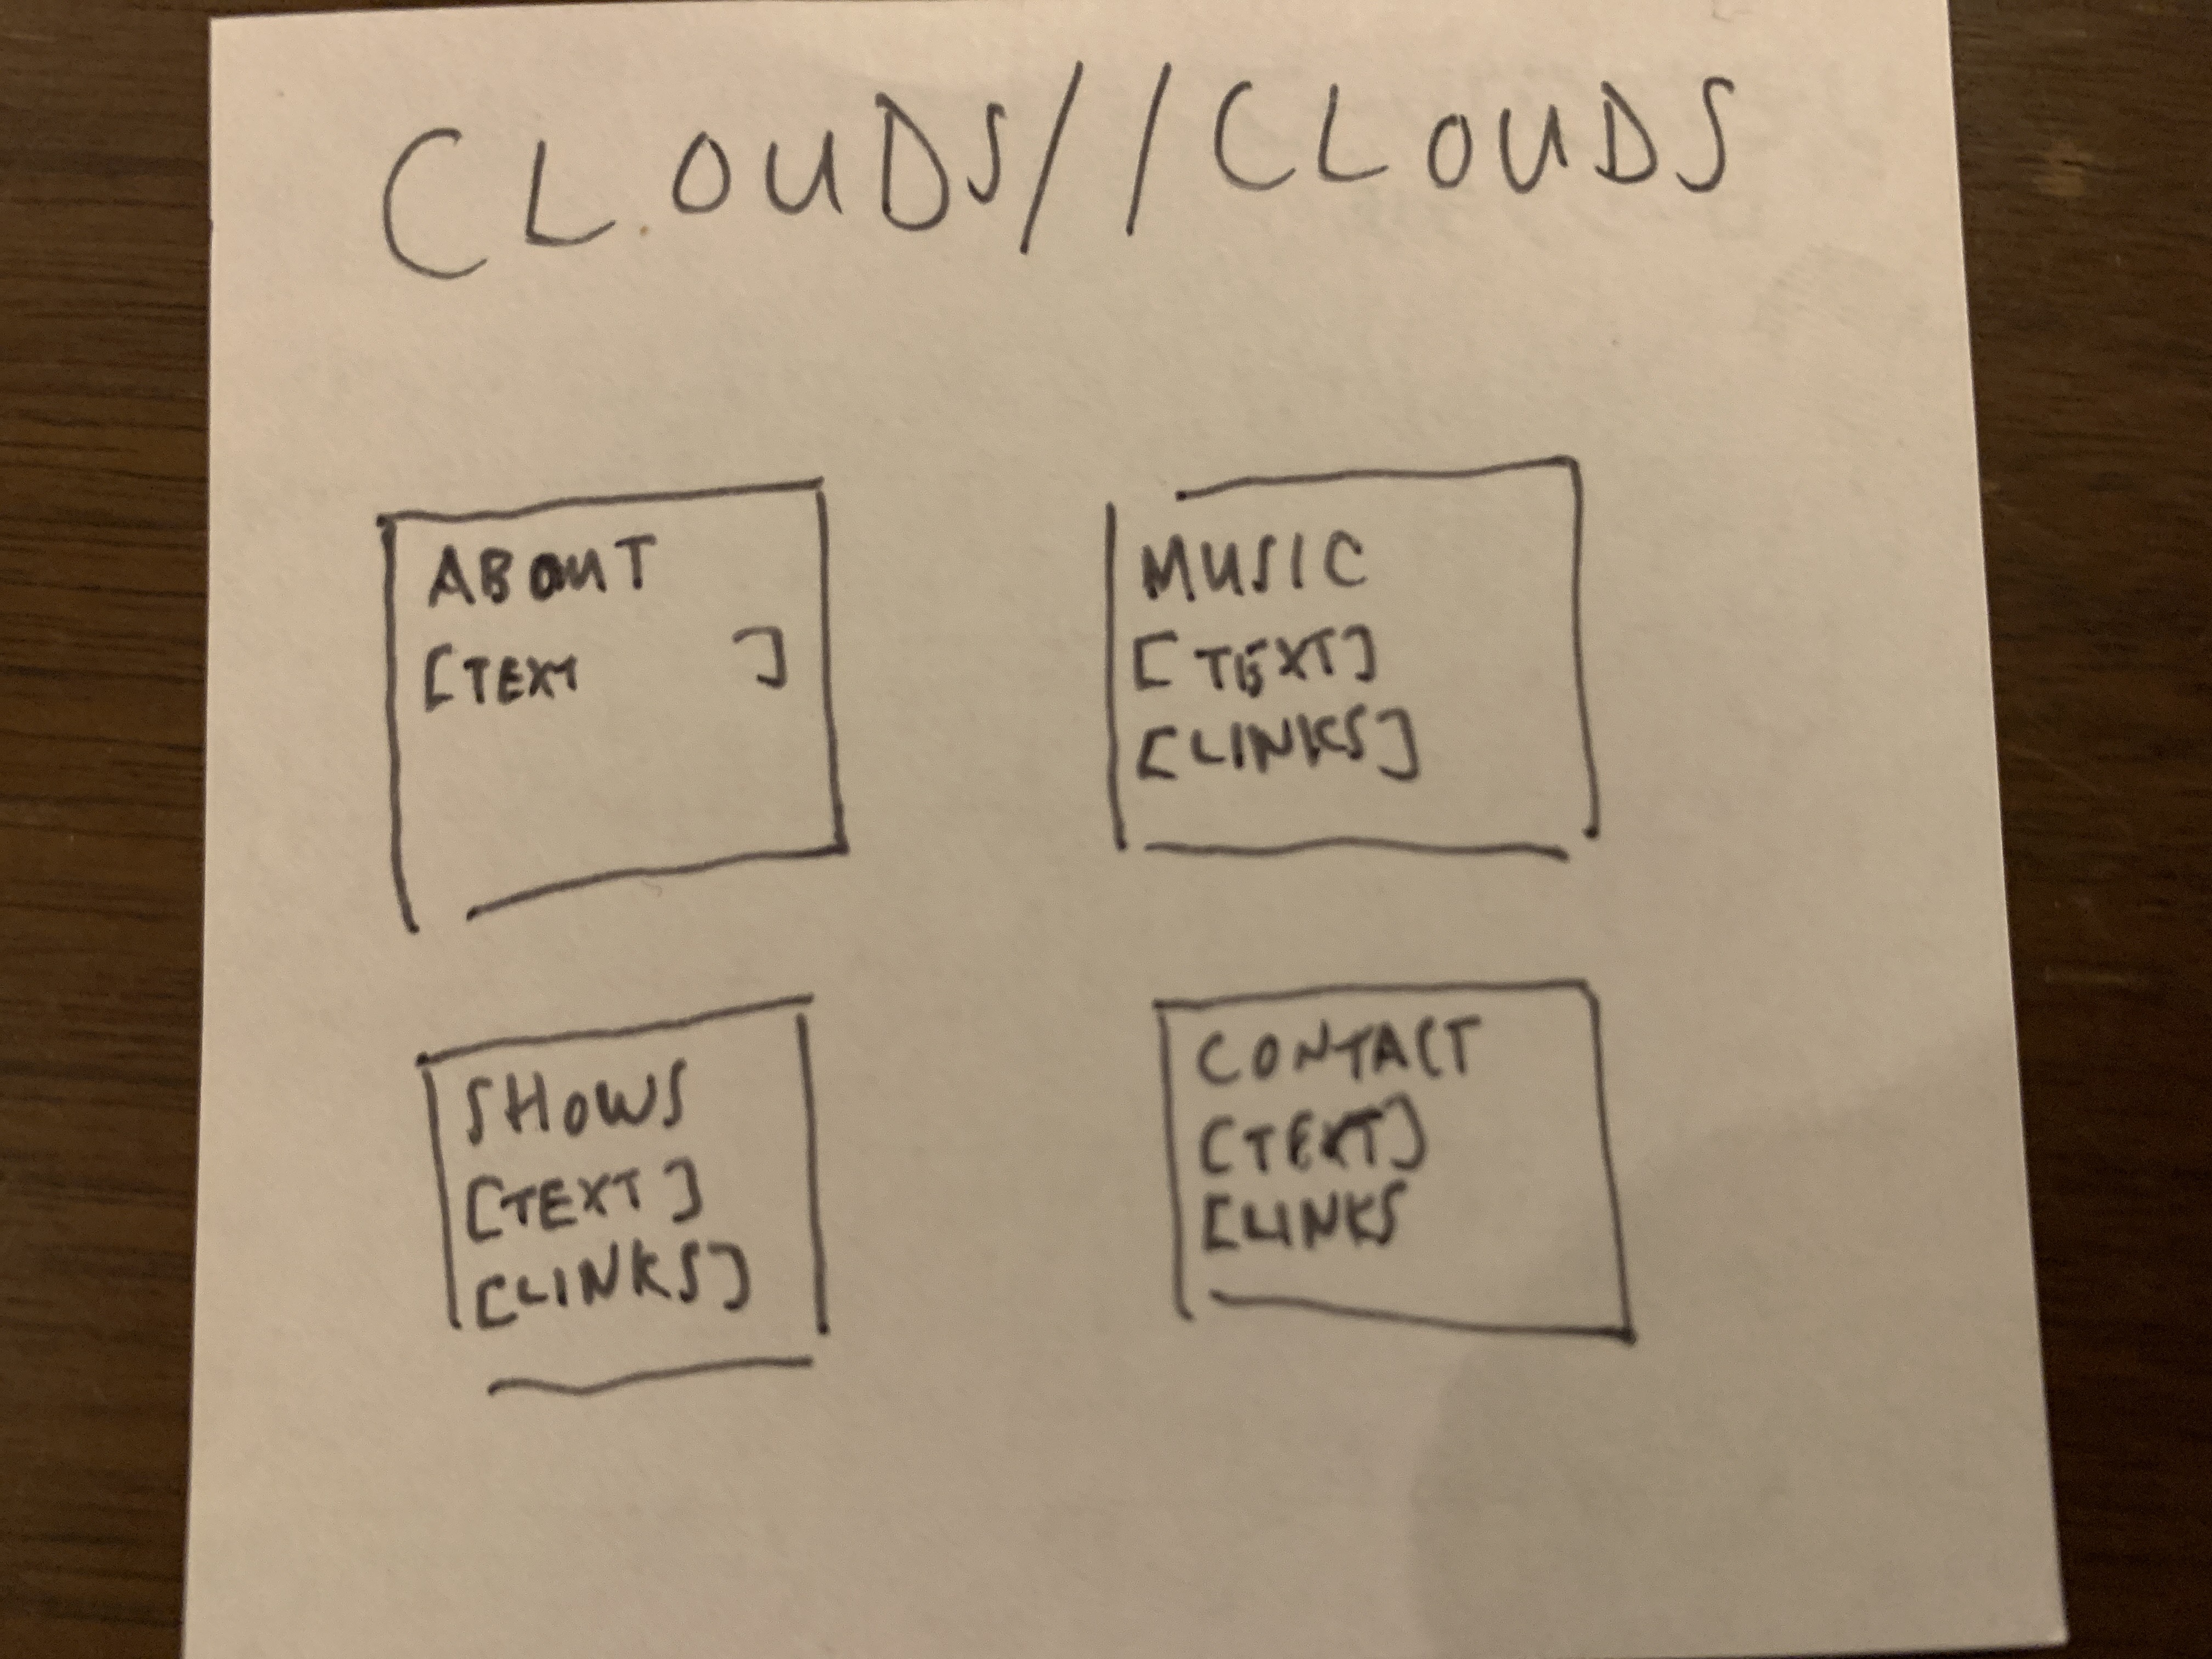 CLOUDS//CLOUDS
ABOUT
[TEXT ]
MUSIC
[TEXT]
[LINKS]
SHOWS
[TEXT]
[LINKS]
CONTACT
[TEXT]
[LINKS